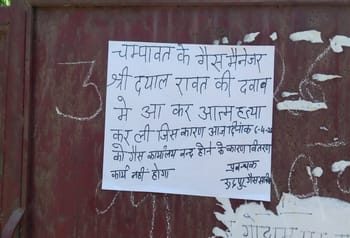 चम्पावत के गैस मैनेजर
श्री दयाल रावत की दवाब
मे आ कर आत्महत्या
कर ली जिस कारण आज दिनांक
को गैस कार्यालय बन्द होने के कारण वितरण
कार्य नही होगा
प्रबन्धक
3